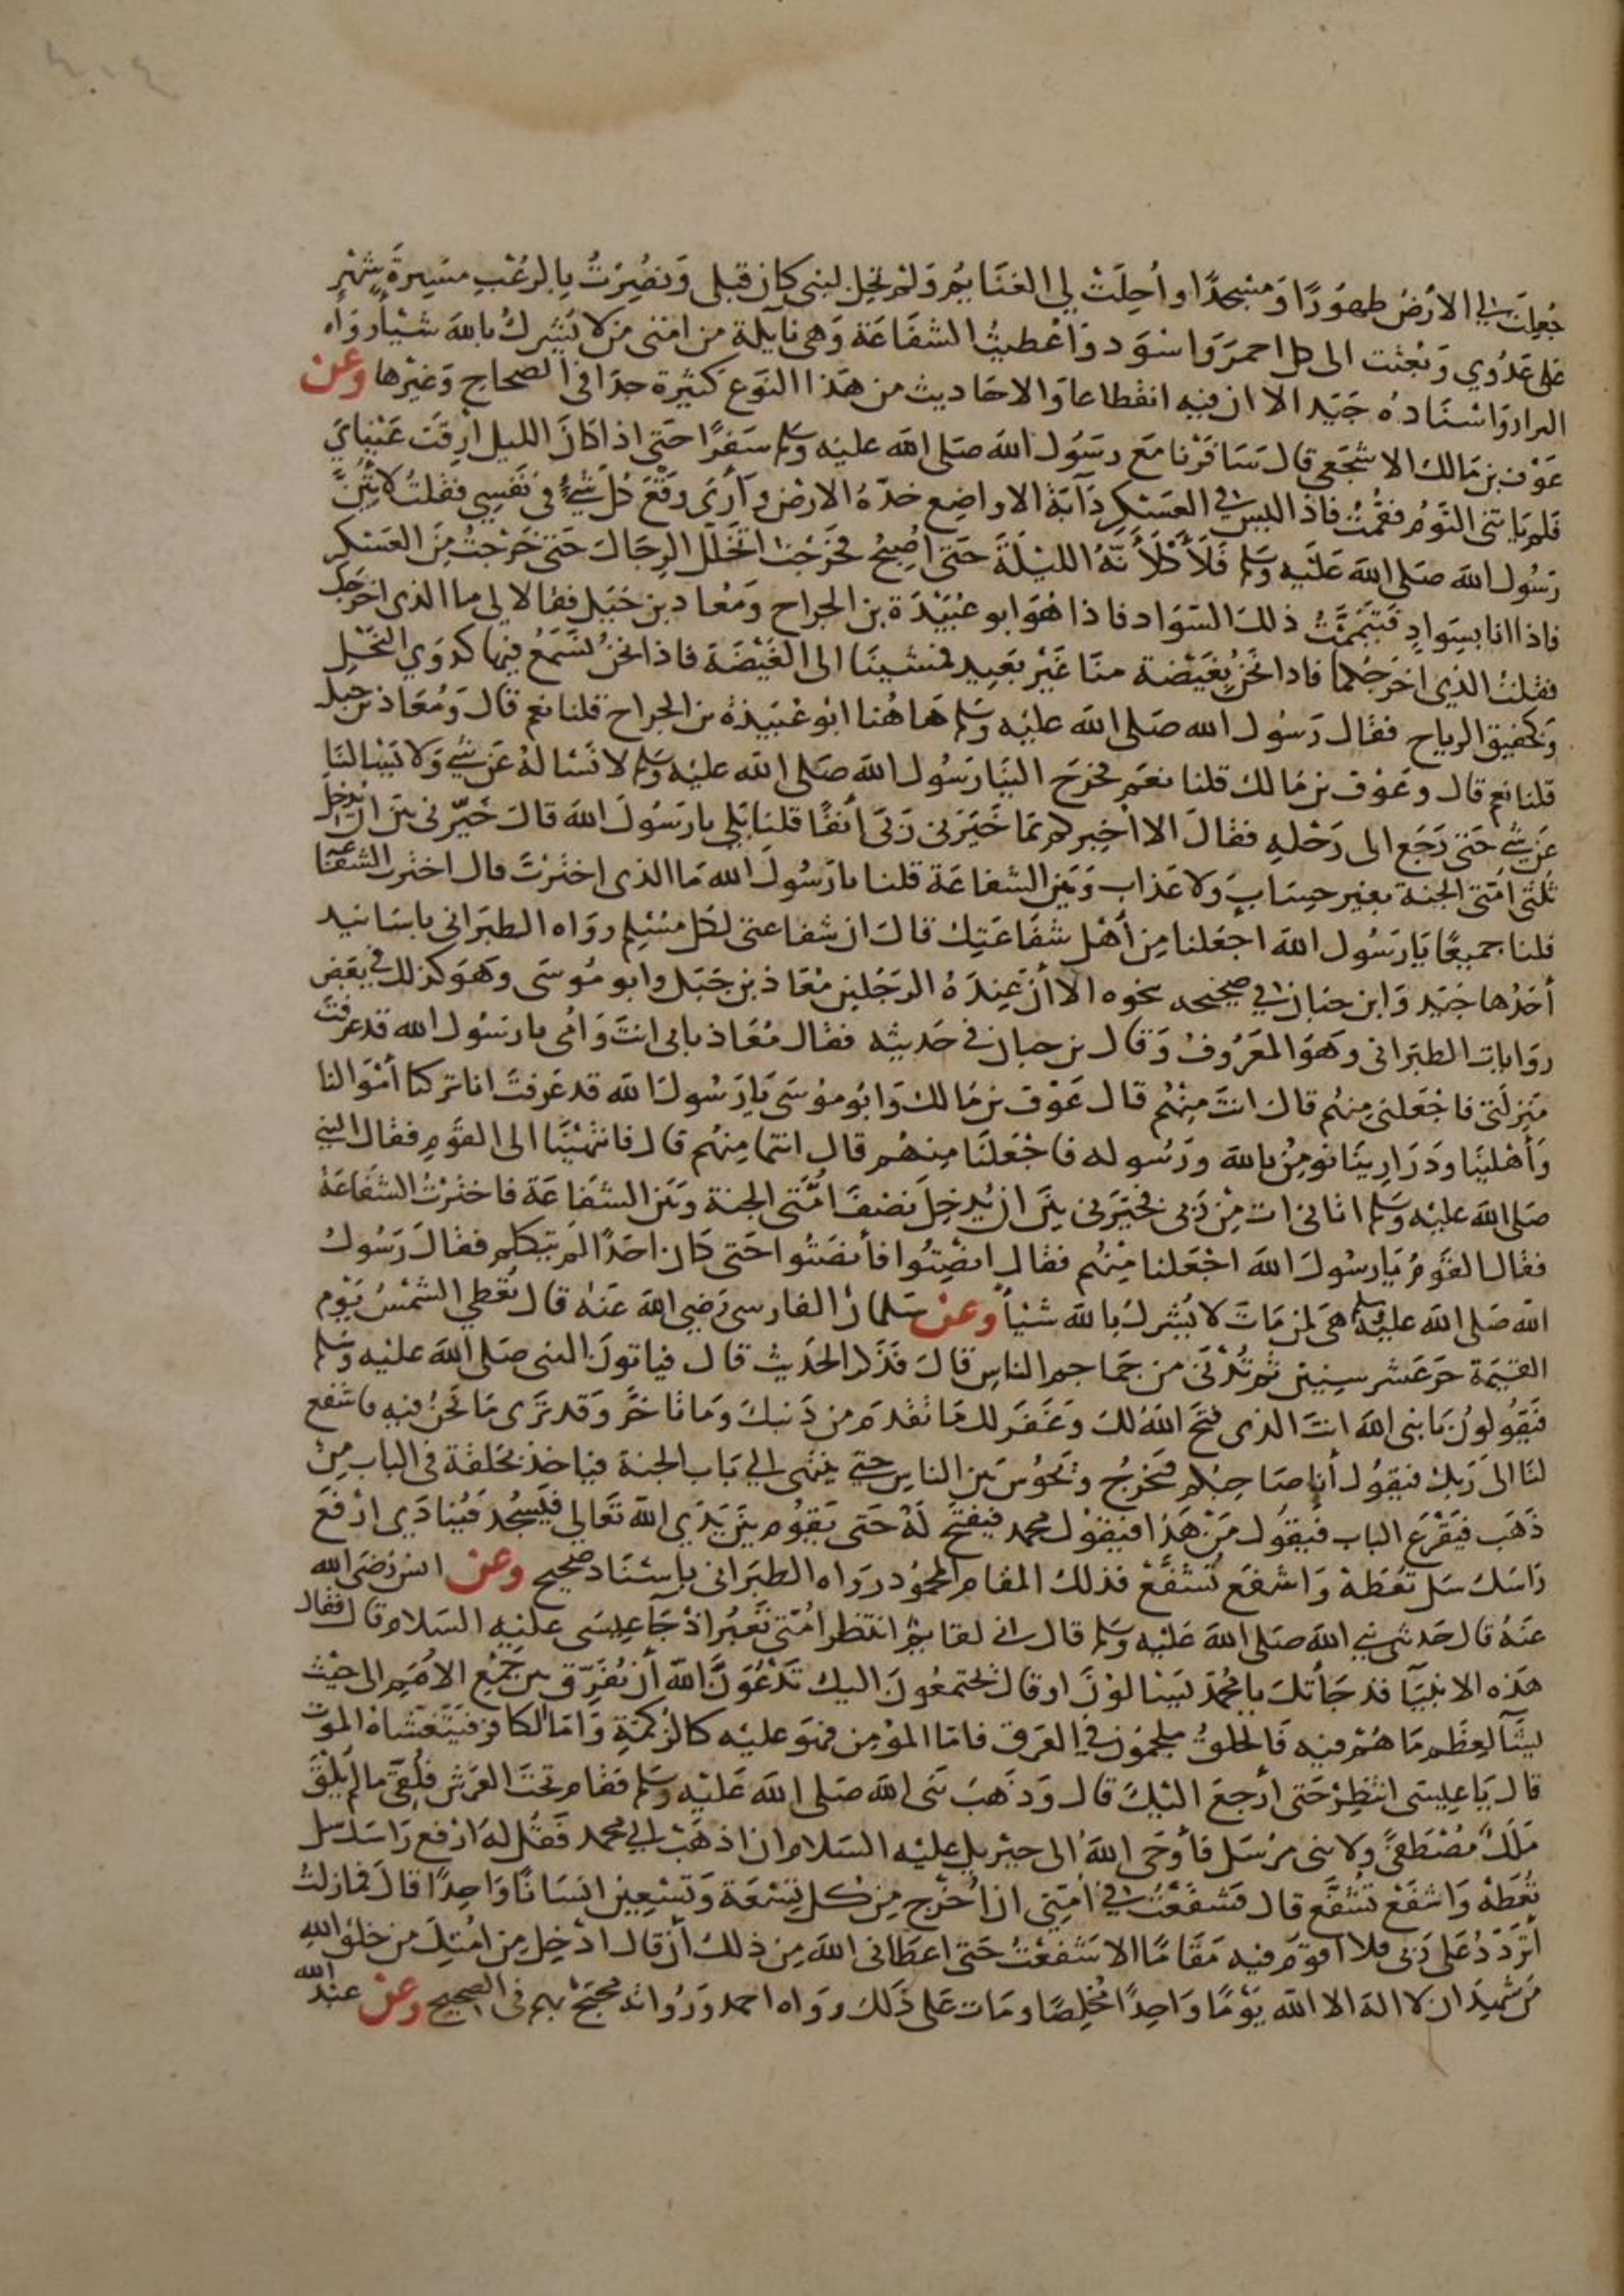 ٤٠٤
جُعِلَت لي الارْضُ طهوَرًا وَمَسْجدًا واُحِلَتْ لي الغنَايمُ وَلمْ تحِل لنبي كان قبلى وَنصُِرْتُ بالرعْبِ مسَيرةَ شهْرٍ
على عَدُوي وَبُعثت الى كل احمرَ وَاسْوَد وَاعْطيتُ الشفَاعَة وَهى نَايلَة من امتى من لا يُشرك بالله شَيْأً رَوَاه
البزار وَاسْنَادهُ جَيَد الا ان فيه انقطاعا وَالاحَاديث من هَذا النَوَع كثيْرة جدَا في الصحَاح وَغيْرها وعن
عَوْف بن مَالك الاشجَعى قال سَافَرْنا مَعَ رسَوُل الله صَلى الله عليْه وسَلم سَفرًا حَتى اذا كانَ الليل اَرِقَتَ عَيْنايَ
فلم يَاتنى النَوْم فقمْتُ فاذا ليسَ في العسْكر دَآبَة الا واضِع خدّهُ الارْض وَاَرَى وقْعَ كُل شَيْءٌ في نَفسِي فقلتُ لاَتِيَنَّ
رَسُول الله صَلى الله عَليْه وسَلم فَلاَكْلاَنَّهُ الليْلَةَ حَتى اُصْبحُ فخَرَجْتَ اتخلَل الرِجَالَ حَتى خَرَجْتُ مِنَ العَسْكر
فاذا انا بسَوادٍ فتَيَمَّمَّتُ ذلكَ السَوَاد فاذا هُوَ ابو عُبَيْدَة بن الجراح ومَعْاد بن جَبَل فقالا لي ما الذى اخرَجَكَ
فقلتُ الذي اخرَجكُما فاذا نَحَنُ بغَيْضة منّا غيْر بَعِيد فمشَيْنَا الى الغَيْضَة فاذا نحنُ نَسْمَعُ فيْها كدَوَي النَحْلِ
وَكحَفيق الرياح فقال رَسُول الله صَلى الله عليْه وسَلم هَا هُنا ابُو عُبَيْدة بن الجراح قلنا نعم قال وَمُعَاذ بن جبل
قلنا نعم قال وعَوْف بن مَالك قلنا نعَم فخرَج الينَا رَسُول الله صَلى الله عليْه وسَلم لا نَسْالهُ عَن شَي وَلا يَسْالنَا
عَن شَيء حَتى رَجَع الى رَحْلهِ فقالَ الا اُخبركم بمَا خَيَرَنى رَبى اَنفًا قلنَا بَلى يا رَسُولَ الله قالَ خَيَّرَنى بيَن ان يُدخل
ثُلثى امَتى الجنة بغير حسَابٍ وَلا عَذاب وَبَين الشفاعَة قلنا يا رَسُولَ الله مَا الذى اخترَتَ قال اخترْت الشفَاعَة
قلنا جميعًا يَا رَسُول الله اجعَلنا مِن اَهْل شفاعَتِك قالَ ان شفاعتى لكل مسْلم رواه الطبَرانى باسَانيد
أحَدُها جَيَد وَابن حبَان في صَحيْحه بنحوه الا اَنَّ عِنْدَهُ الرَجُلين مُعَاذ بن جَبَل وابو مُوسَى وهَوَ كذلك في بَعَض
روَايات الطبَرانى وهَوَ المعَرُوفُ وَقَال بن حبان في حَديْثه فقال مُعَاذ بابى انتَ وَامى يا رسَوُل الله قد عرَفتَ
مَنزلَتى فاجْعَلنى منهُم قال انتَ مِنْهُم قال عَوْف بن مَالك وَابُو مُوْسَى يَا رَسُول الله قد عَرَفتَ انا تركنا أمْوَالنا
وَأهْلينَا وَذَرَارِينَا نُومنُ بالله وَرَسُوله فاجْعَلنَا مِنهُم قال انتما مِنهُم قال فانتهْيَنا الى القوْم فقال النبي
صَلى الله عليْه وسَلم اتانى اتٍ مِنْ رَبى فخيَرَنى بيَن ان يُدخِل نصْفَ امُّتى الجنة وَبين الشفَاعَة فاختَرْتُ الشفَاعَة
فقال القَومُ يَا رسُولَ الله اجْعَلنا مِنْهُم فقال انصِتُوا فأنصَتوا حَتى كَان احَدًا لم يَتكلم فقالَ رَسُولُ
الله صَلى الله عليْه وسَلم هىَ لمن مَاتَ لا يُشرك بالله شَيْاً وعن سَلمان الفارسى رَضِي الله عَنهُ قال تُعْطي الشمْسُ يَوْم
القيَمَة حَرّ عَشر سِنيْن ثم تُدْنَى من جَماجم الناسِ قالَ فذَكر الحَديْث قال فياتونَ النبى صَلى الله عليْه وسَلم
فيَقُولونُ يَا نبى الله انتَ الذى فتَحَ اللهُ لكَ وغَفَر لك مَا تقدمَ من ذَنبك وَمَا تاخرَّ وَقد تَرى مَا نَحنُ فيْه فاشفع
لنَا الى رَبك فيقوُل أنا صَاحِبكم فيَخرُجُ وَيَحُوْسُ بَين الناسِ حتي ينتهى الي بَاب الجنة فيَاخذ بحَلقة في الباب مِنْ
ذَهَب فيَقْرَع الباب فيُقوُل مَنْ هَذَا فيَقوْل محمد فيُفتح لهُ حَتى يَقوُم بيَن يَدَي الله تعَالى فيَسْجُد فيُنادَي ارْفعَ
رَاسَكَ سَل تُعْطَهْ وَاشفَع تُشَفَّعْ فذلك المقام المحمُود رَوَاه الطبَرانى باسْنَاد صَحيْح وعن انس رَضىَ الله
عَنهُ قال حَدثني نبي الله صَلى الله عَليْه وسَلم قال اني لقايم انتظر امَتى تَعْبُر اذْ جَا عيسَى عليْه السَلام قال فقال
هَذه الانبيَآ قد جَاءَتكَ يا محمَد يَسْالوْنَ او قال يجتمعُونَ اليك تَدْعُوَنَ اللهَ أن يُفَرِّق بين جَمْع الامَم الى حَيْث
يشَآ لعِظَم مَا هُمْ فيْه فَالخلقُ ملجمَوُن في العَرَق فامَا المؤمِن فهوَ عليْه كالزُّكمَةِ وَامَا الكافر فيَتغَشاهُ الموت
قال يَا عيْسَى انتظِرْ حَتى أرجعَ اليْكَ قال وَذهَبَ نَبى الله صَلى الله عَليْه وسَلم فقام تحتَ العَرش فلُقىَ مَا لم يَلقَ
مَلكٌ مُصْطَفىً ولا نبى مُرْسَل فأوْحَى اللهُ الى جبْريل عليْه السَلام ان اذهَبْ الي محمد فقُل لهَ ارْفع رَاسَك سَل
تُعْطَهْ وَاشفَعْ تُشفَّع قال فشفَعْتُ في اُمَّتي ان اُخرج مِن كل تسْعَة وَتسْعِيْن انسَانًا وَاحِدًا قالَ فمازلتُ
أترَدَدُ عَلى رَبى فلا اقوُم فيْه مَقَامًا الا شفَعْتُ حَتى اعطَانى الله مِن ذلكَ أن قال ادْخِل مِن امُتِكَ من خلق اللهِ
مَن شهِدَ ان لا اله الا الله يَوْمًا وَاحِدًا مُخلِصًا وَمَات عَلى ذَلكَ رَوَاه احمد وَرُوَاته محتجّ بهم في الصحيح وعن عبْد الله